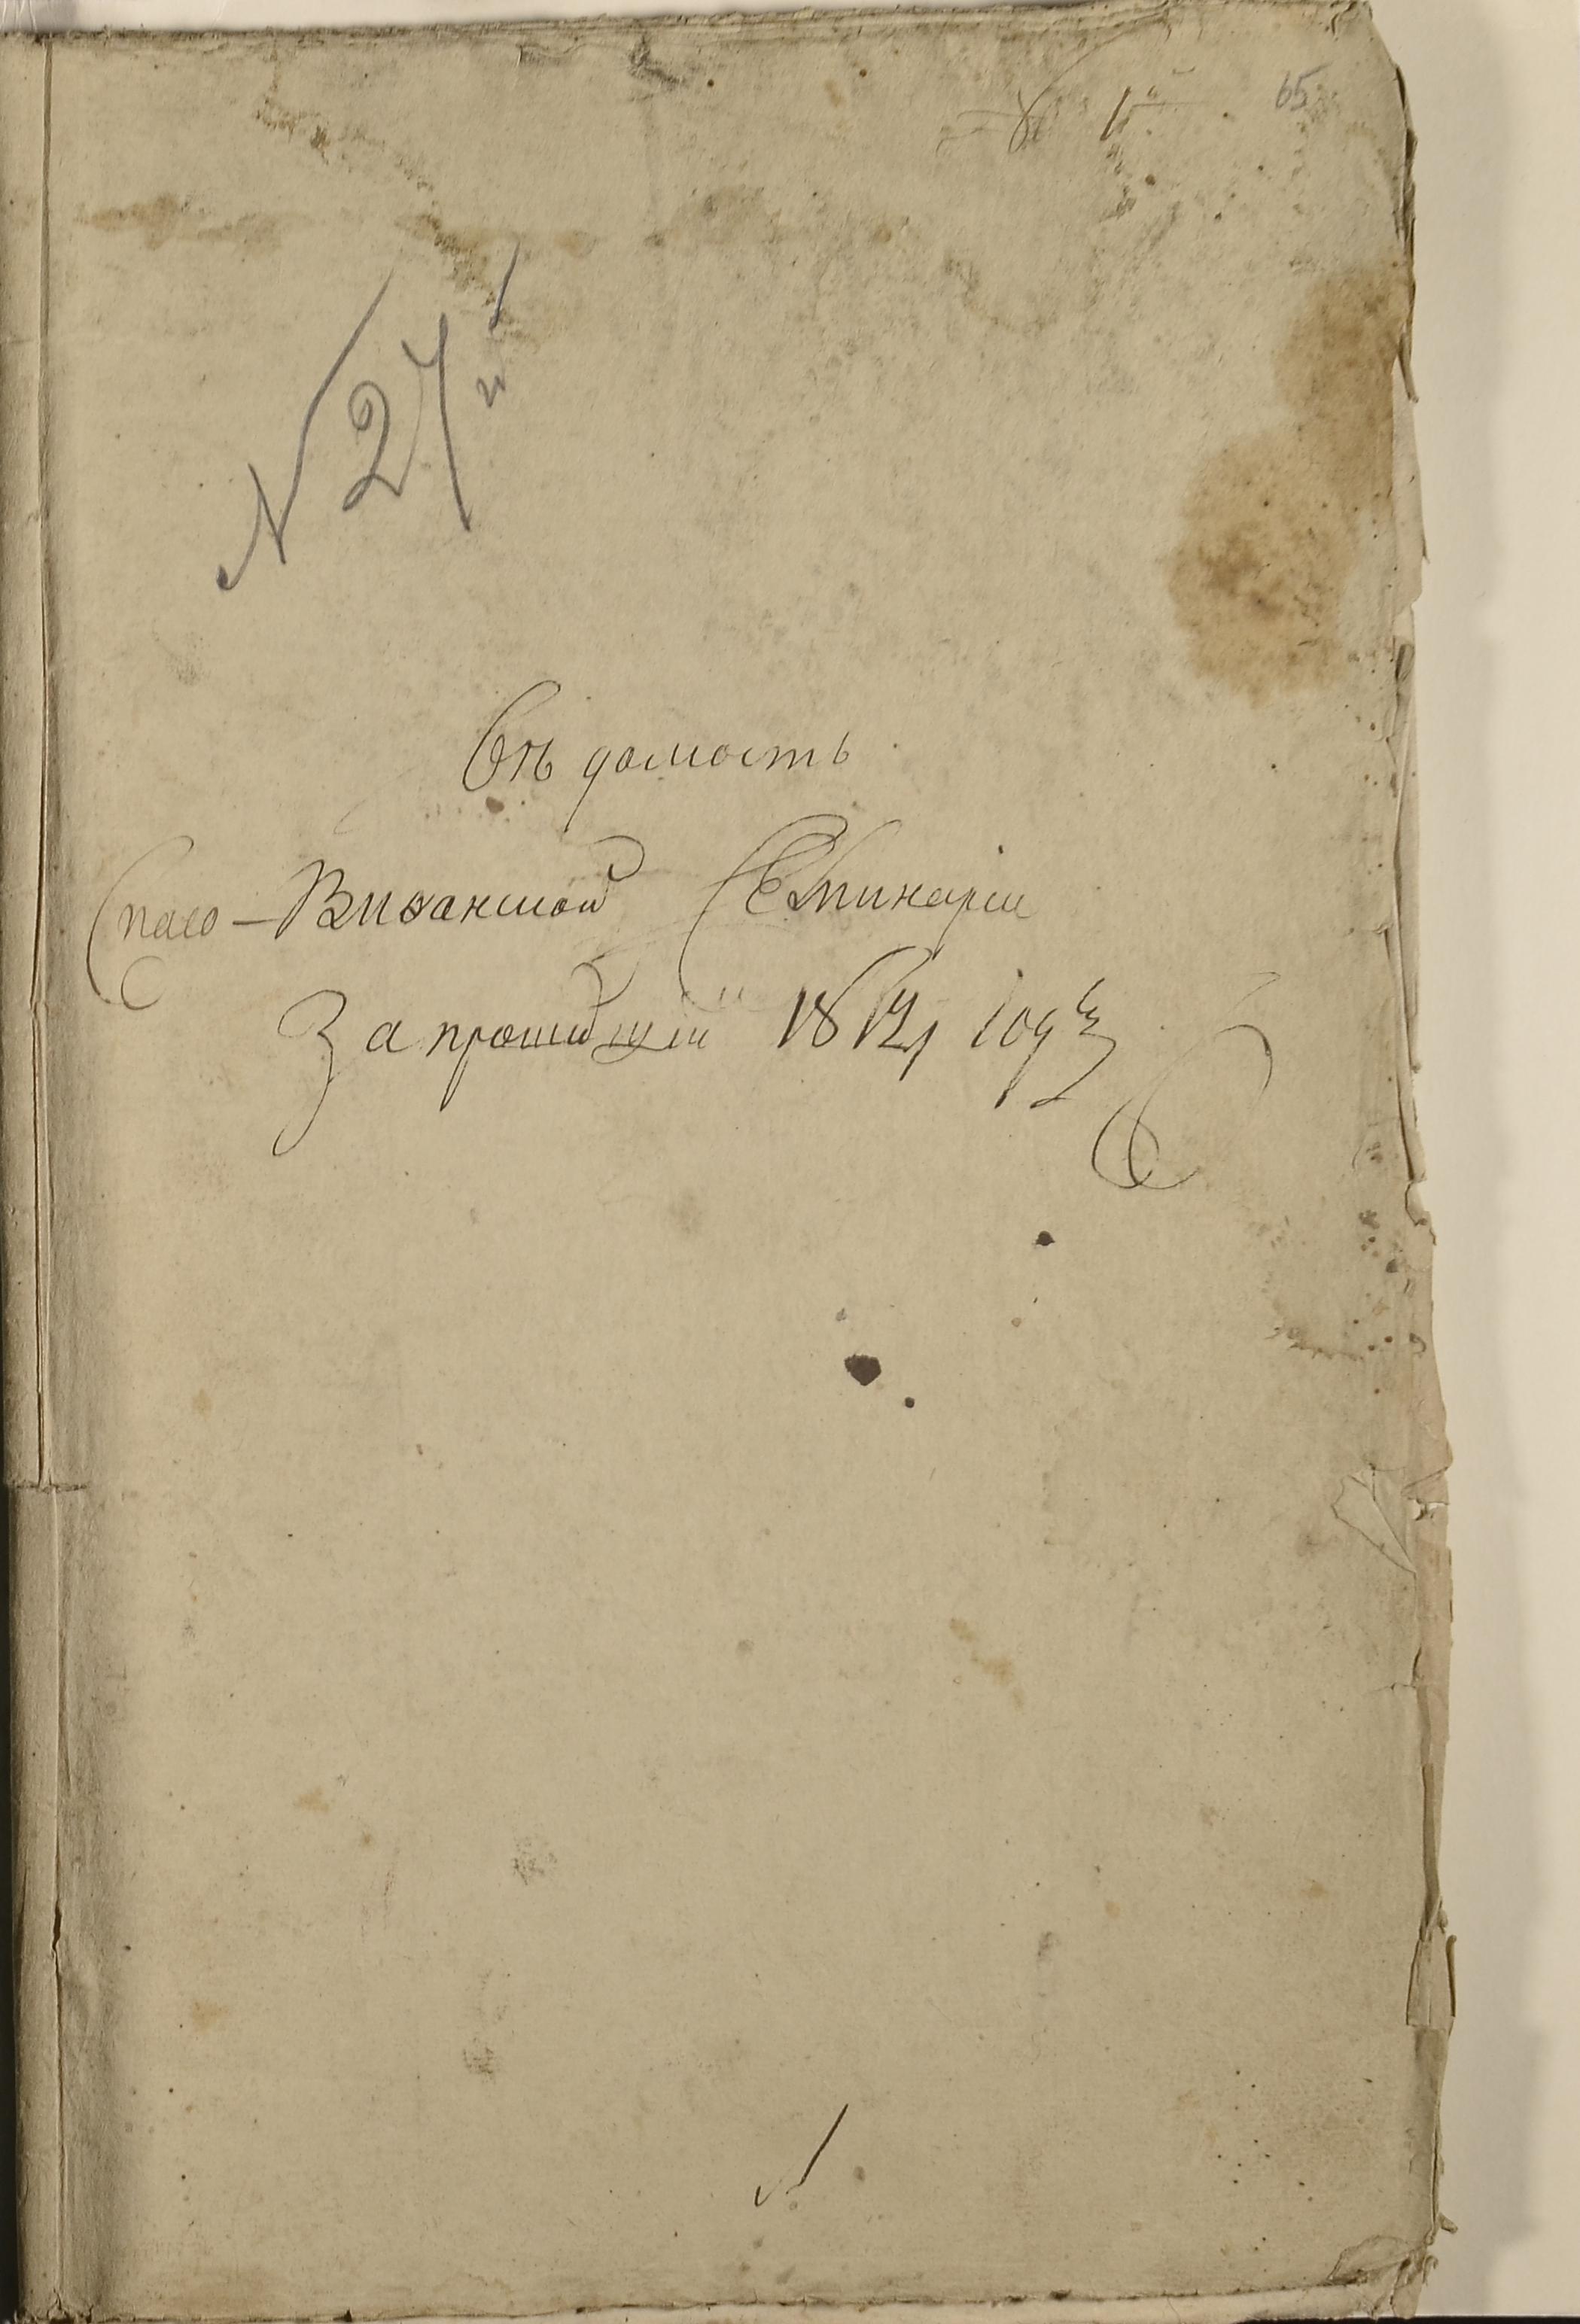 65
№ 27й
Вѣдомость
Спасо-Виѳанской Семинаріи
За прошедшій годъ
1